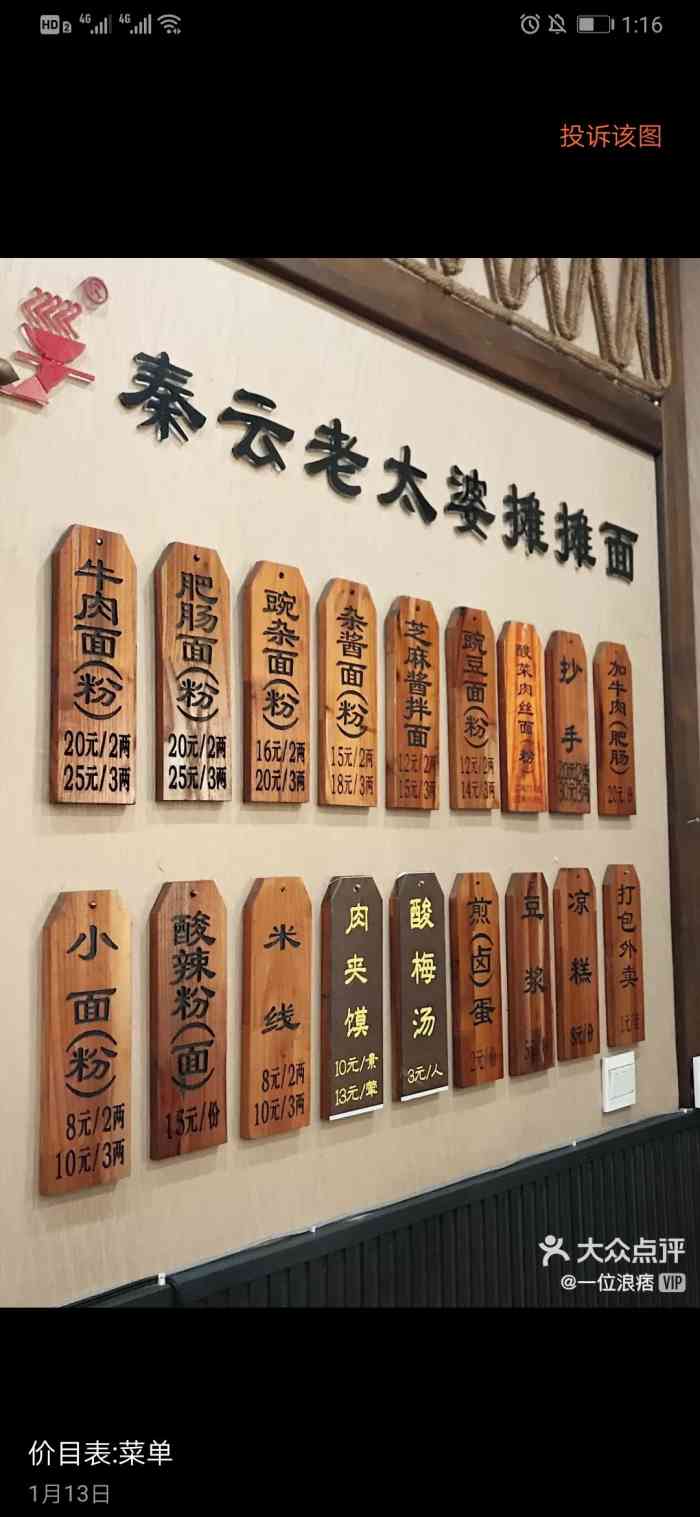 HD 2 4G 4G 1:16
投诉该图
秦云老太婆摊摊面
牛肉面(粉)
20元/2两
25元/3两
肥肠面(粉)
20元/2两
25元/3两
豌杂面(粉)
16元/2两
20元/3两
杂酱面(粉)
15元/2两
18元/3两
芝麻酱拌面
12元/2两
15元/3两
豌豆面(粉)
12元/2两
14元/3两
酸菜肉丝面(粉)
抄手
20元/2两
30元/3两
加牛肉(肥肠)
20元/份
小面(粉)
8元/2两
10元/3两
酸辣粉(面)
15元/份
米线
8元/2两
10元/3两
肉夹馍
10元/素
13元/荤
酸梅汤
3元/人
煎(卤)蛋
2元/
豆浆
凉糕
8元/份
打包外卖
1元/
大众点评
@一位浪痞 VIP
价目表:菜单
1月13日